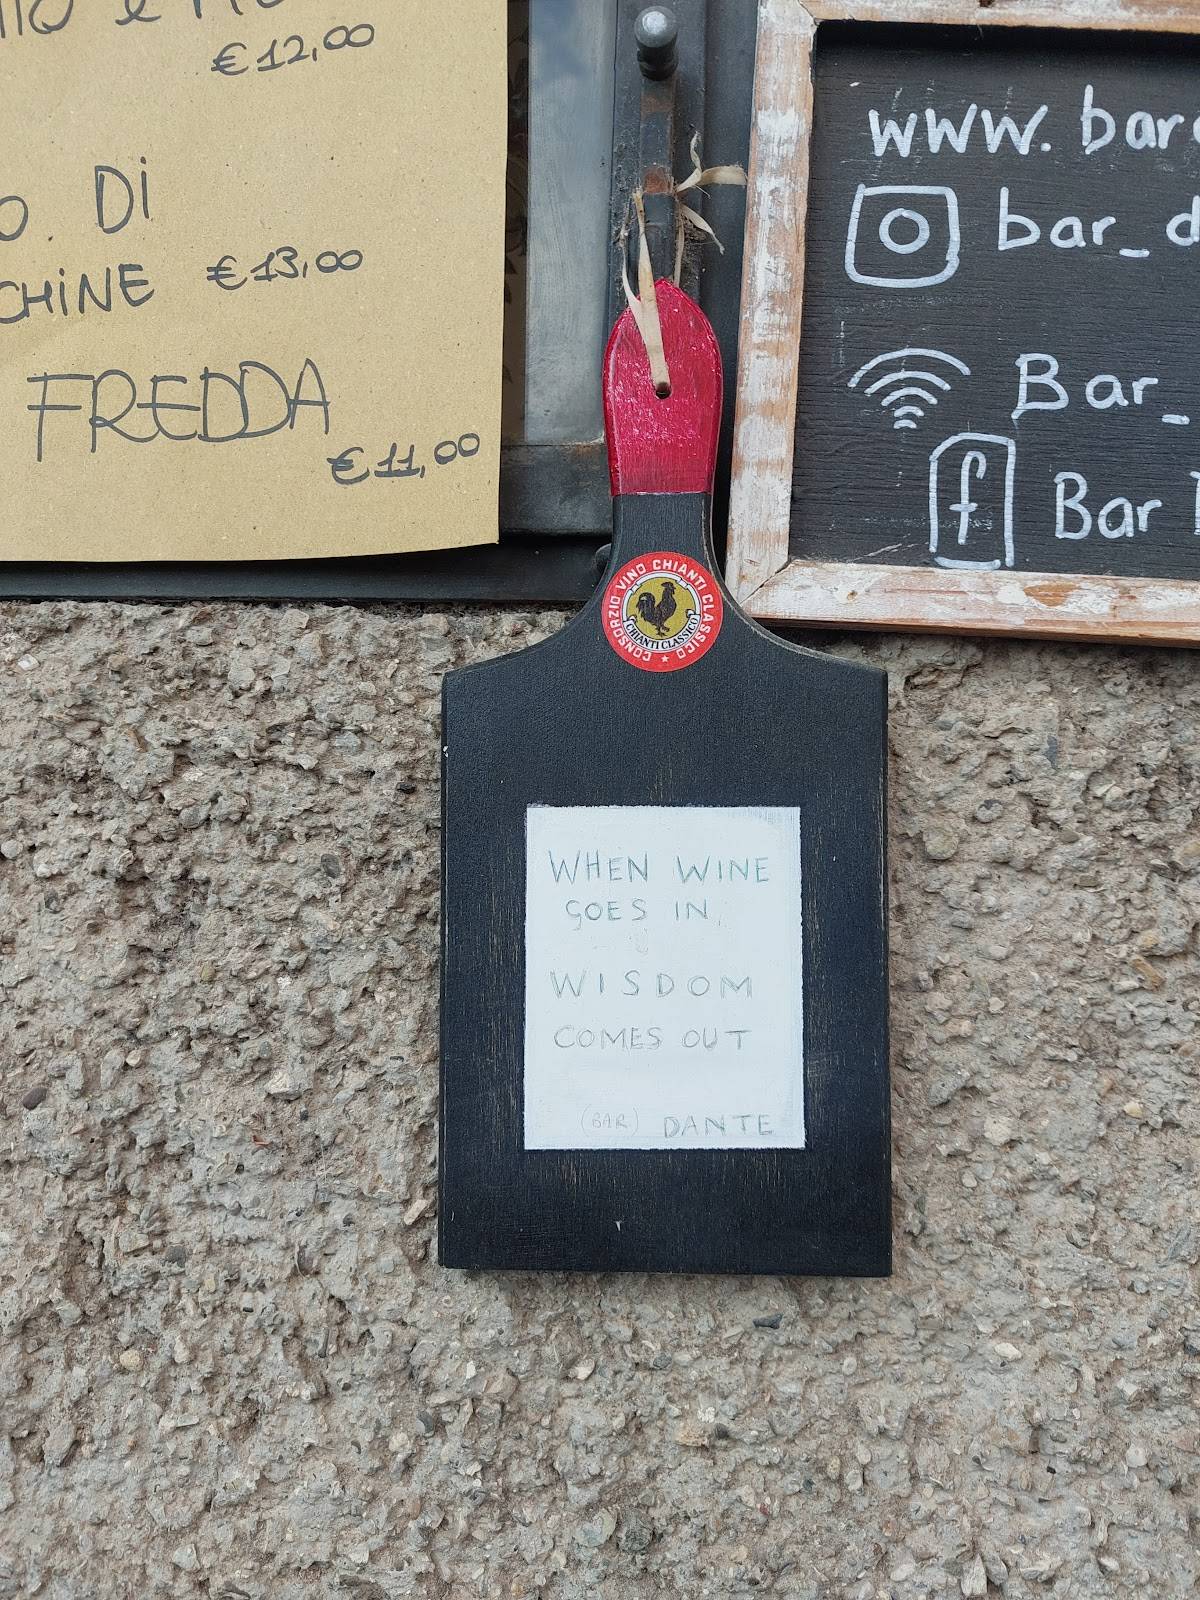 €12,00
DI
€13,00
FREDDA
€11,00
www.
bar_d
Bar_
f
Bar
CONSORZIO VINO CHIANTI CLASSICO
CHIANTI CLASSICO
WHEN WINE
GOES IN,
WISDOM
COMES OUT
(BAR) DANTE